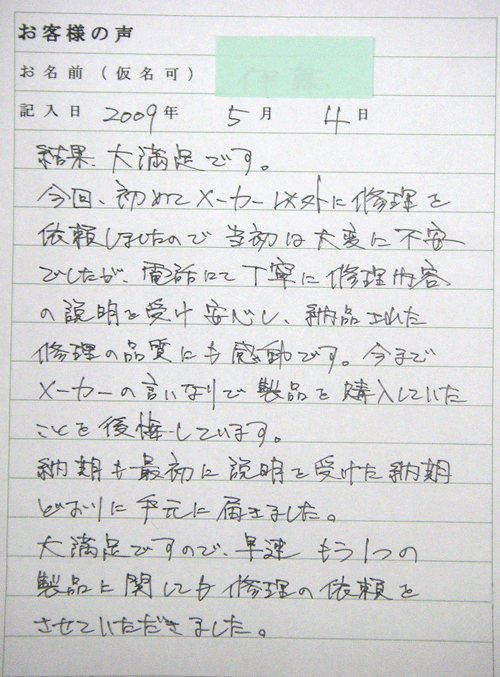 お客様の声
お名前（仮名可）
記入日 2009年 5月 4日
結果、大満足です。
今回、初めてメーカー以外に修理を
依頼しましたので当初は大変に不安
でしたが、電話にて丁寧に修理内容
の説明を受け安心し、納品された
修理の品質にも感動です。今まで
メーカーの言いなりで製品を購入していた
ことを後悔しています。
納期も最初に説明を受けた納期
どおりに手元に届きました。
大満足ですので、早速もう1つの
製品に関しても修理の依頼を
させていただきました。